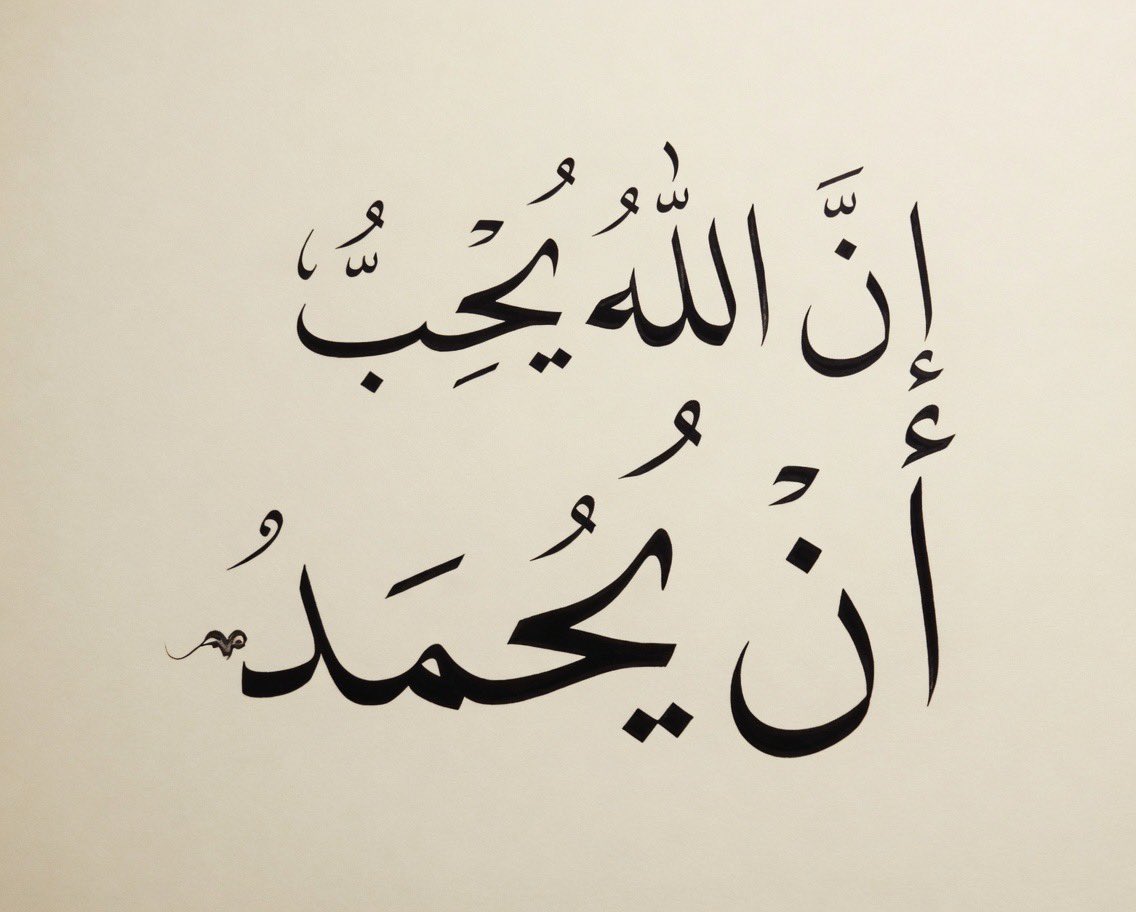 إنَّ اللّٰهُ يُحِْبُّ
أنْ يُحُمَدُ